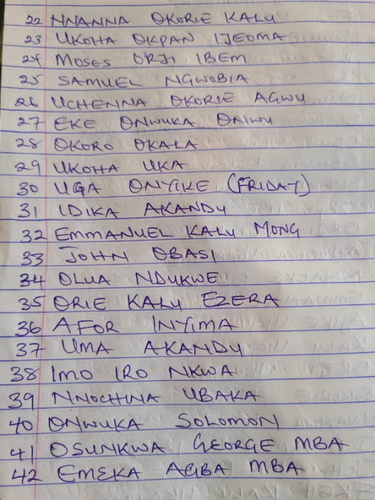 22 NNANNA OKORIE KALU
23 UKOHA OKPAN IJEOMA
24 MOSES ORJI IBEM
25 SAMUEL NGWOBIA
26 UCHENNA OKORIE AGWU
27 EKE ONWUKA ONIWU
28 OKORO OKALA
29 UKOHA UKA
30 UGA ONYIKE (FRIDAY)
31 IDIKA AKANDU
32 EMMANUEL KALU MONG
33 JOHN OBASI
34 OLUA NDUKWE
35 ORIE KALU EZERA
36 AFOR INYIMA
37 UMA AKANDU
38 IMO IRO NKWA
39 NNOCHINA UBAKA
40 ONWUKA SOLOMON
41 OSUNKWA GEORGE MBA
42 EMEKA AGBA MBA